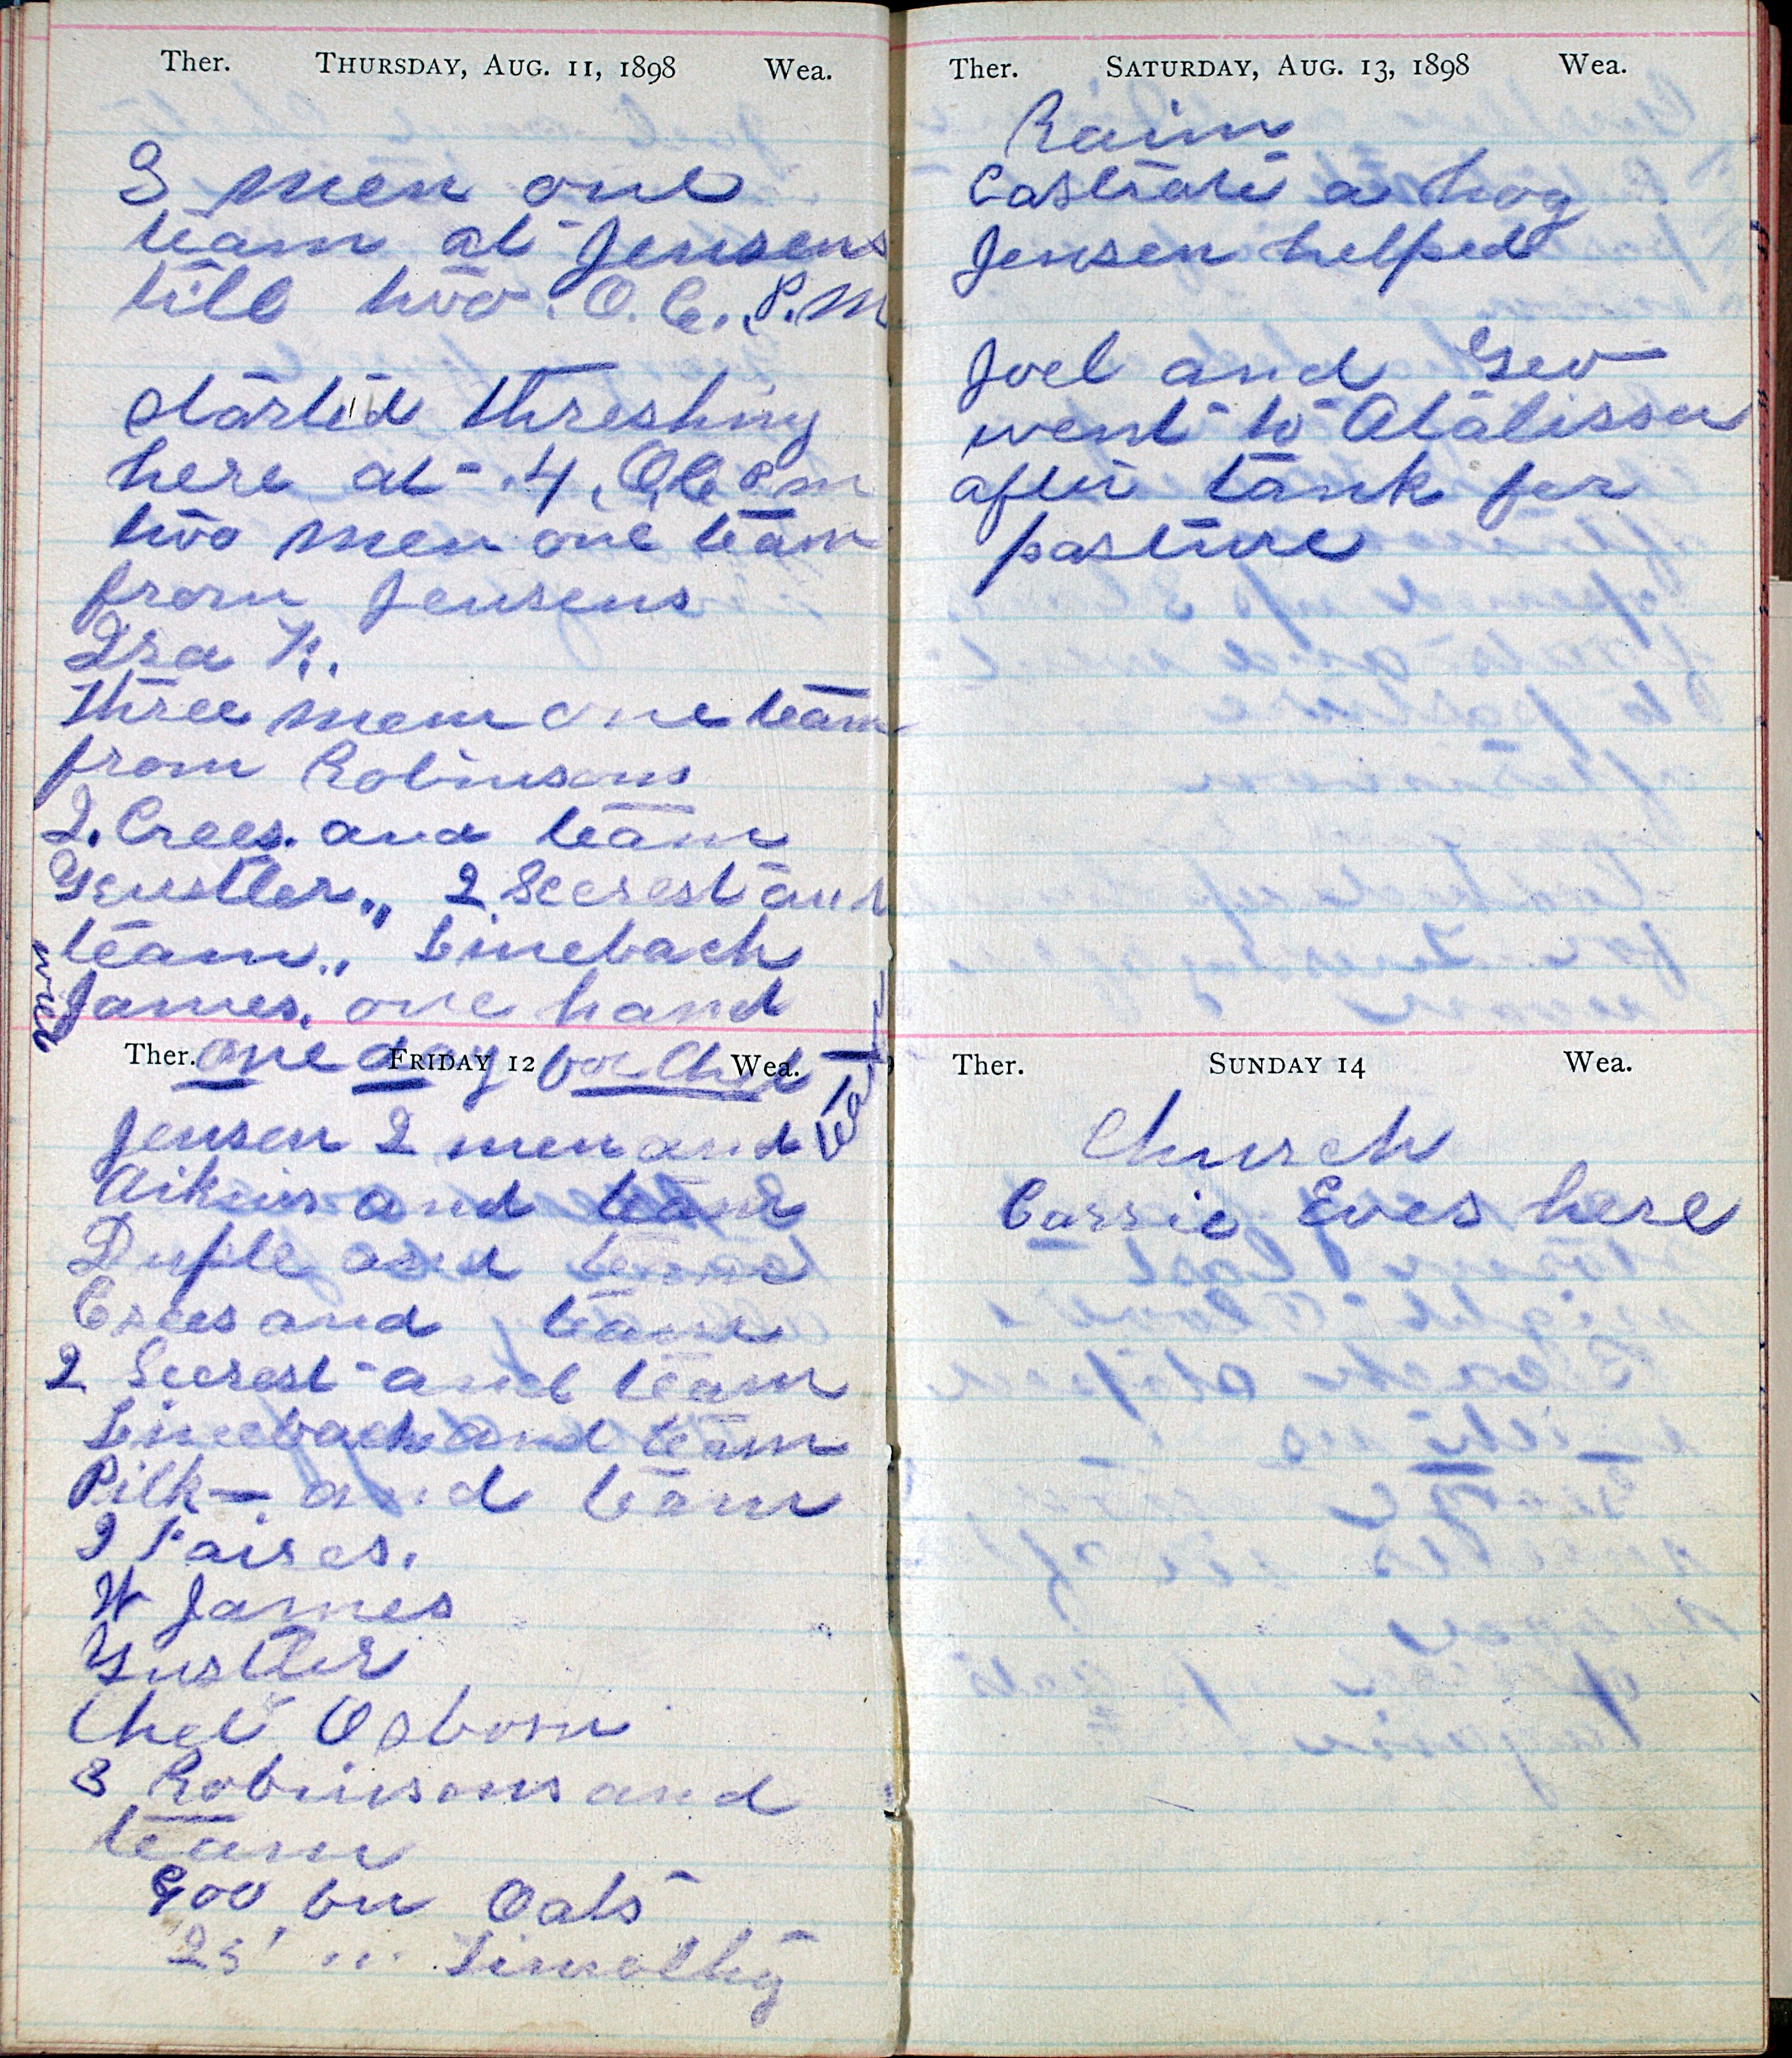 Ther. Thursday, Aug. 11, 1898 Wea.
3 men one
team at Jensens
till two. O.C. P.M
started threshing
here at 4, O.C P m
two men one team
from Jensens
Ira N.
three men one team
from Robinsons
2. Crees. and team
Gustler,, 2 Secrest and
team,, Linebach
James, one hand
Ther. Friday 12 Wea.
one day for Chet
Jensen 2 men and team
Aikins and team
Duple and team
Crees and team
2 Secrest and team
Linebach and team
Pilk— and team
W James
Gustler
Chet Osborn
3 Robinsons and
team
900 bu Oats
25 " Timothy
Ther. Saturday, Aug. 13, 1898 Wea.
Rain
Castrate a hog
Jensen helped
Joel and Geo
went to Atalissa
after tank for
pasture
Ther. Sunday 14 Wea.
Church
Cassie Eves here